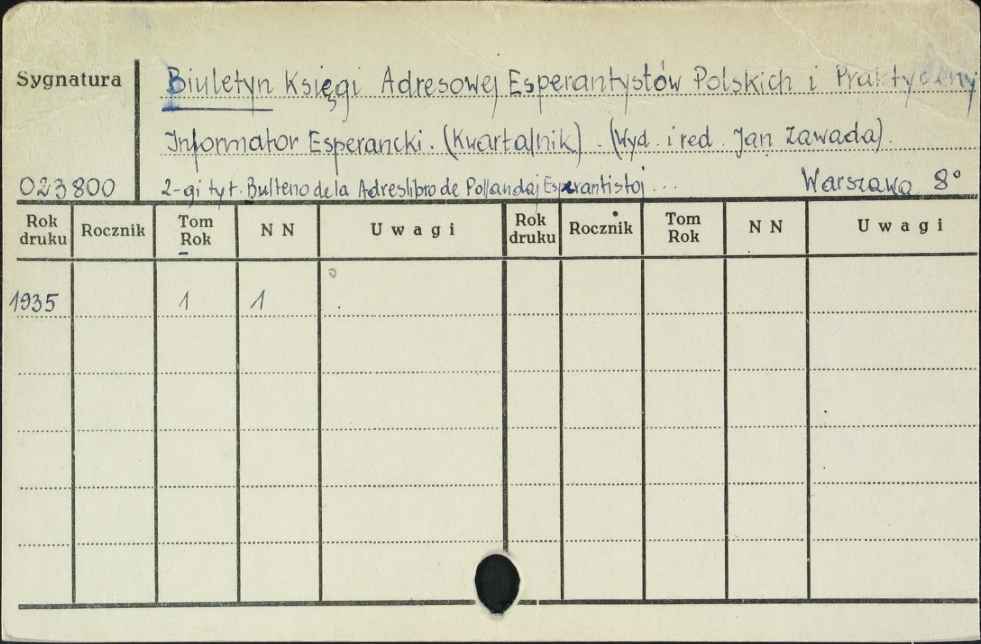 Sygnatura
Biuletyn Księgi Adresowej Esperantystów Polskich i Praktyczny
Informator Esperancki. (Kwartalnik). (Wyd. i red. Jan Zawada).
023800
2-gi tyt. Bulteno de la Adreslibro de Pollandaj Esperantistoj... Warszawa 8°
Rok druku Rocznik Tom Rok NN Uwagi Rok druku Rocznik Tom Rok NN Uwagi
1935 1 1